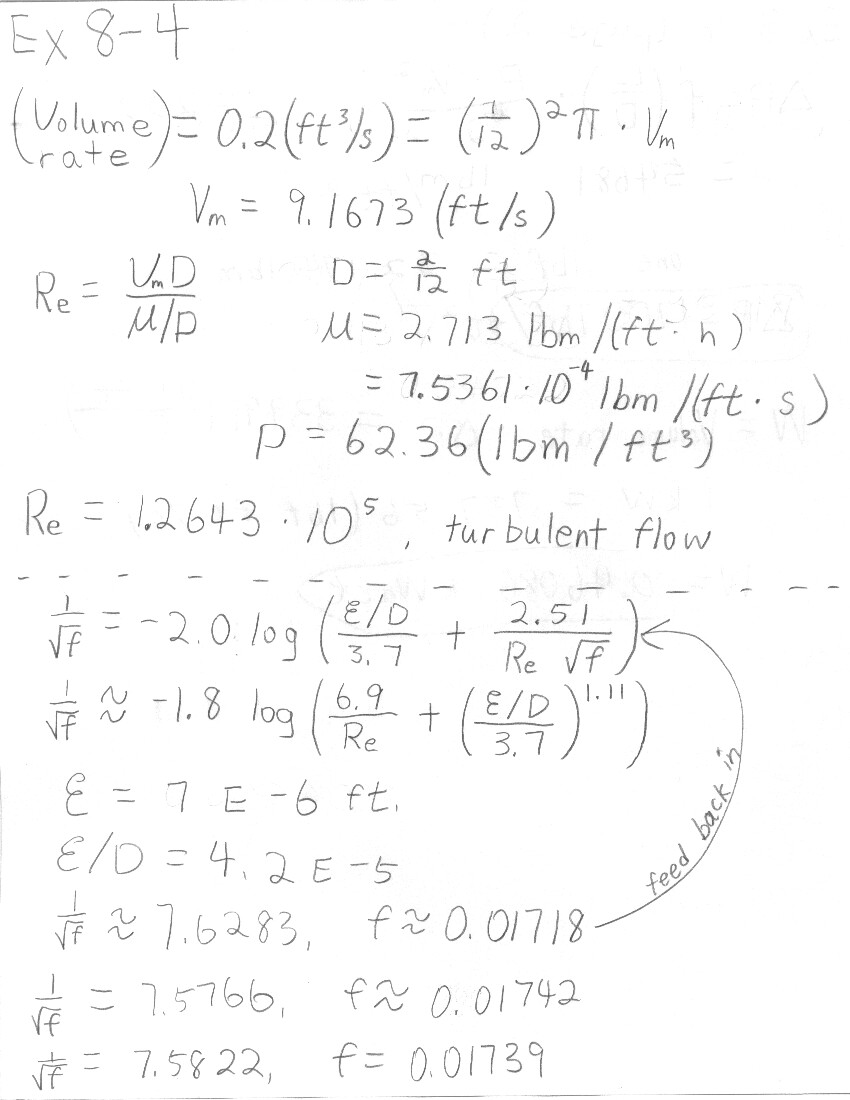 Ex 8-4
(Volume rate) = 0.2 (ft³/s) = (1/12)² π · Vm
Vm = 9.1673 (ft/s)
Re = VmD / μ/ρ    D = 2/12 ft
μ = 2.713 lbm/(ft·h)
= 7.5361·10⁻⁴ lbm/(ft·s)
ρ = 62.36 (lbm/ft³)
Re = 1.2643·10⁵, turbulent flow
1/√f = -2.0 log (ε/D / 3.7 + 2.51 / Re √f)
1/√f ≈ -1.8 log (6.9/Re + (ε/D / 3.7)^1.11)
ε = 7 E-6 ft.
ε/D = 4.2 E-5
feed back in
1/√f ≈ 7.6283, f ≈ 0.01718
1/√f = 7.5766, f ≈ 0.01742
1/√f = 7.5822, f = 0.01739